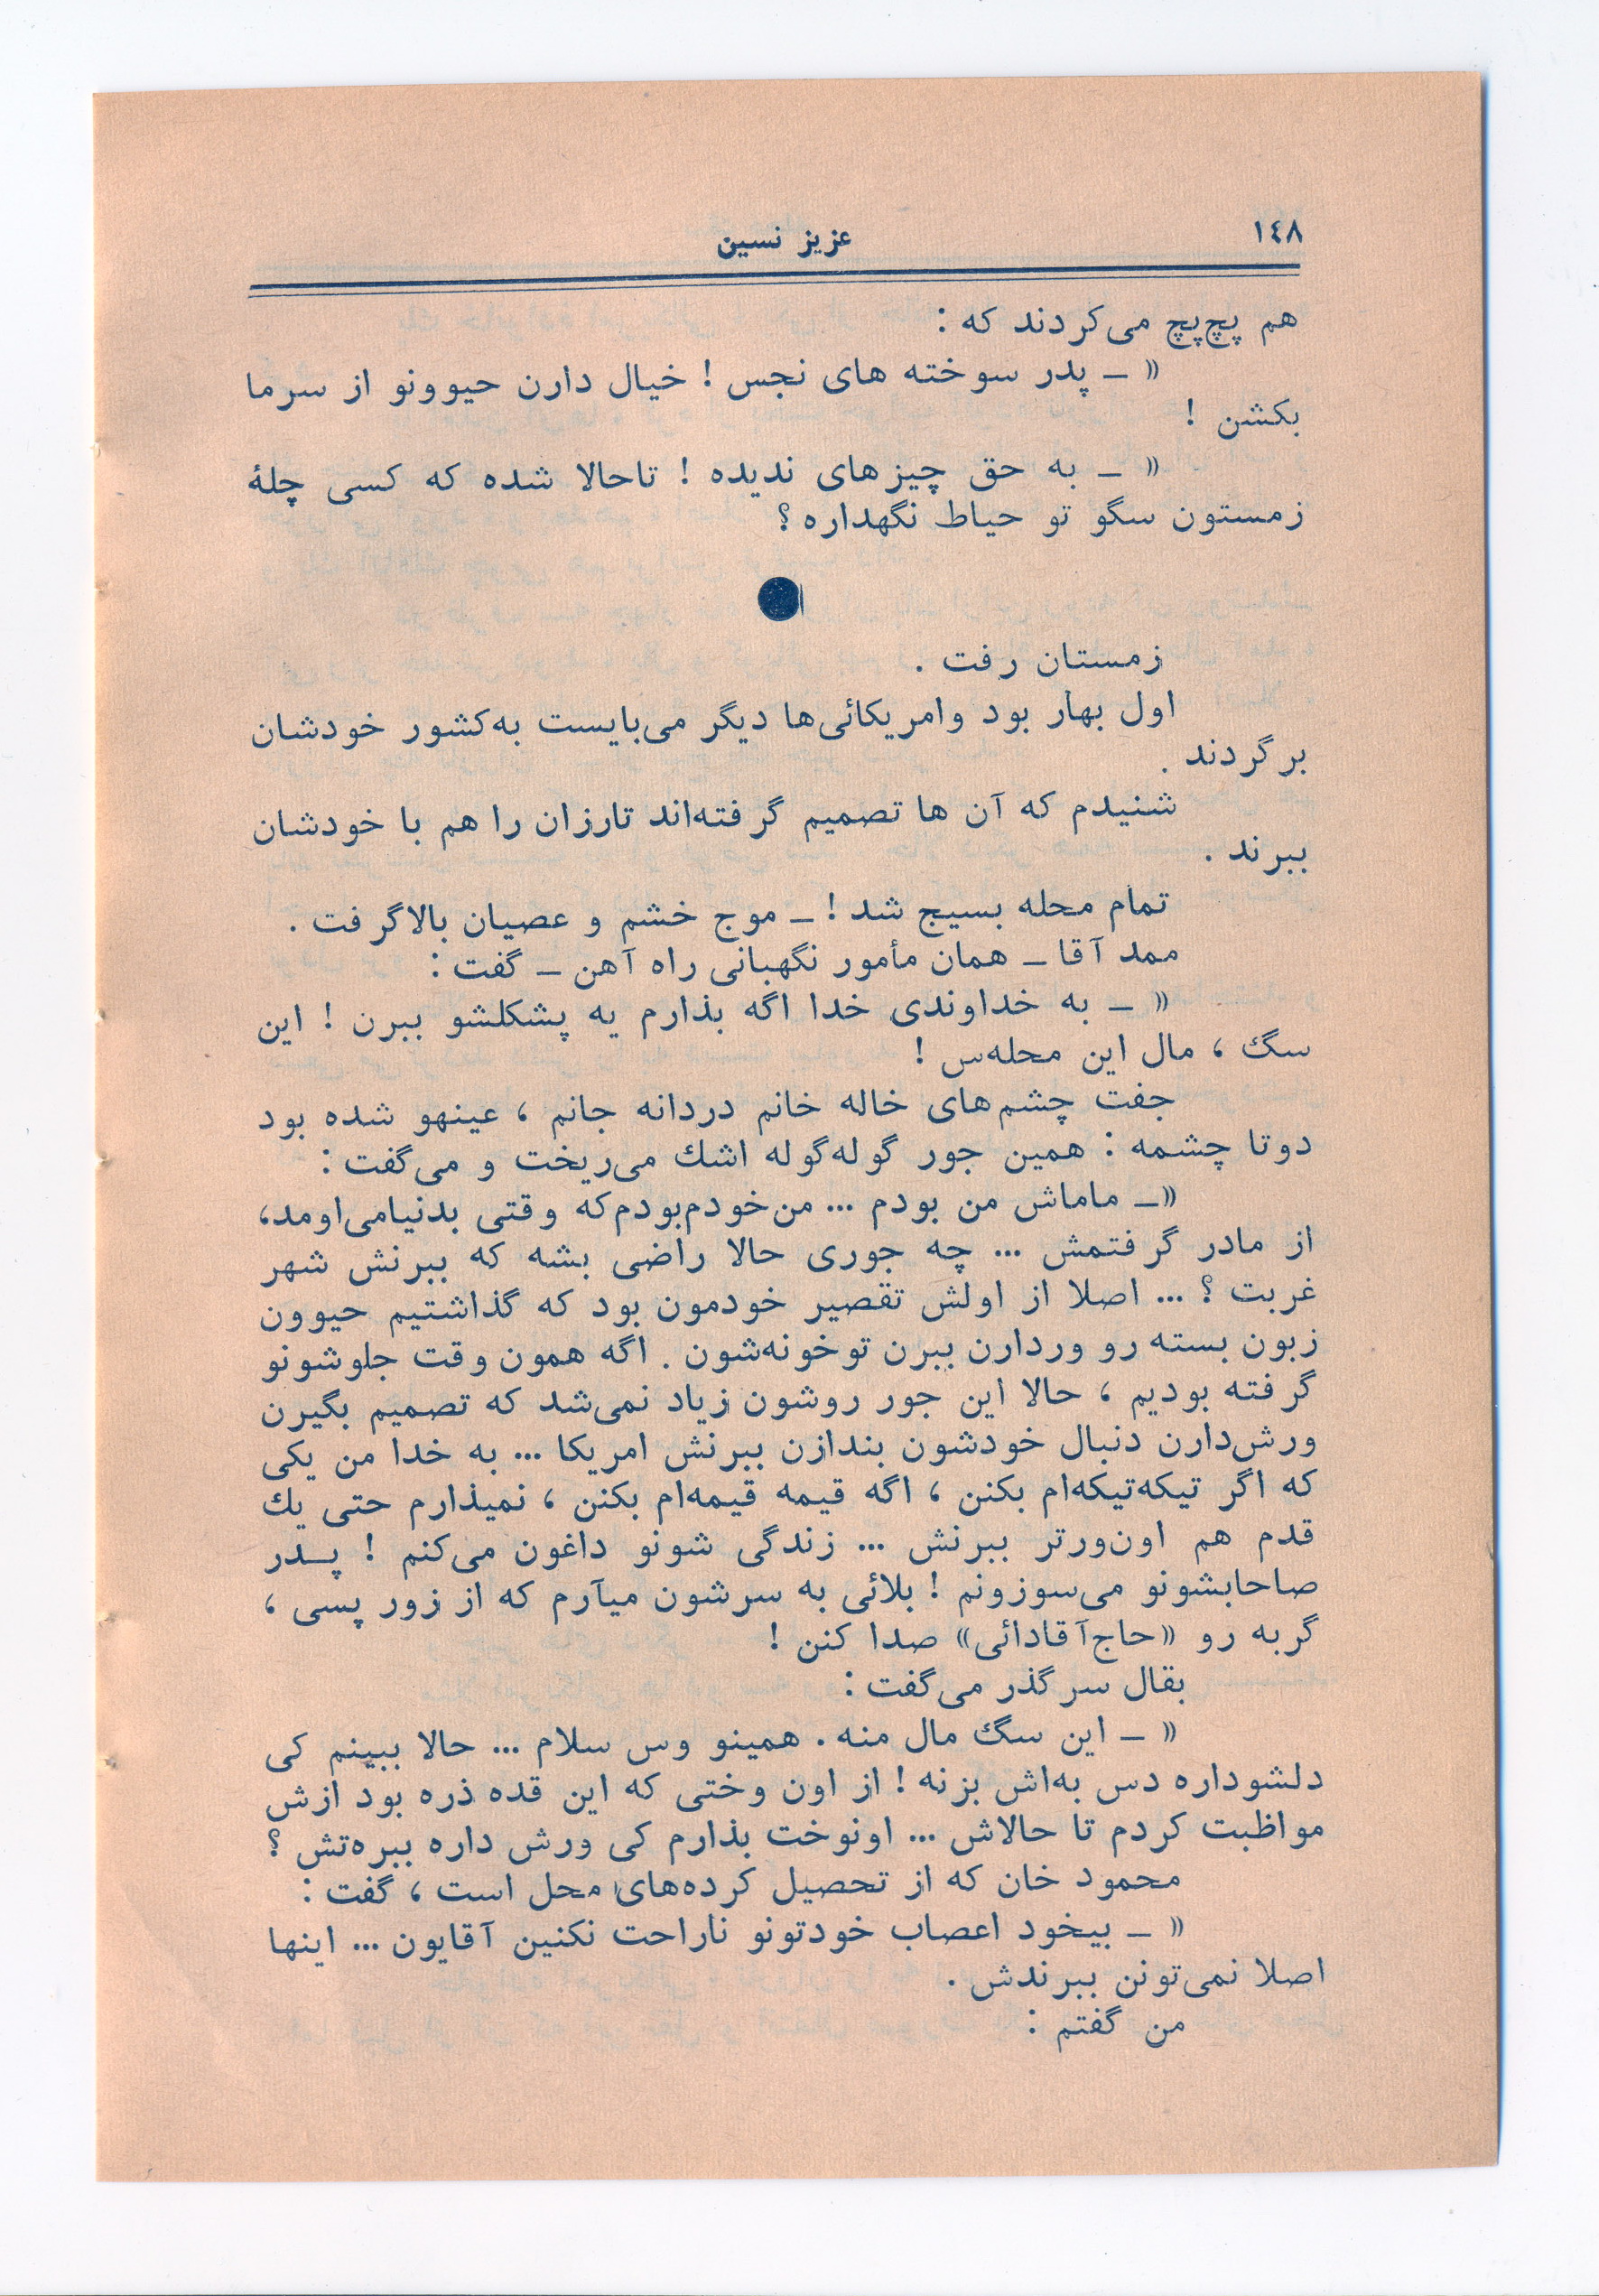 ۱٤۸
عزیز نسین
هم پچ‌پچ می‌کردند که :
« ــ پدر سوخته های نجس ! خیال دارن حیوونو از سرما
بکشن !
« ــ به حق چیزهای ندیده ! تاحالا شده که کسی چلهٔ
زمستون سگو تو حیاط نگهداره ؟
زمستان رفت .
اول بهار بود وامریکائی‌ها دیگر می‌بایست به‌کشور خودشان
برگردند .
شنیدم که آن ها تصمیم گرفته‌اند تارزان را هم با خودشان
ببرند .
تمام محله بسیج شد ! ــ موج خشم و عصیان بالاگرفت .
ممد آقا ــ همان مأمور نگهبانی راه آهن ــ گفت :
« ــ به خداوندی خدا اگه بذارم یه پشکلشو ببرن ! این
سگ ، مال این محله‌س !
جفت چشم‌های خاله خانم دردانه جانم ، عینهو شده بود
دوتا چشمه : همین جور گوله‌گوله اشك می‌ریخت و می‌گفت :
«ــ ماماش من بودم ... من‌خودم‌بودم‌که وقتی بدنیامی‌اومد،
از مادر گرفتمش ... چه جوری حالا راضی بشه که ببرنش شهر
غربت ؟ ... اصلا از اولش تقصیر خودمون بود که گذاشتیم حیوون
زبون بسته رو وردارن ببرن توخونه‌شون . اگه همون وقت جلوشونو
گرفته بودیم ، حالا این جور روشون زیاد نمی‌شد که تصمیم بگیرن
ورش‌دارن دنبال خودشون بندازن ببرنش امریکا ... به خدا من یکی
که اگر تیکه‌تیکه‌ام بکنن ، اگه قیمه قیمه‌ام بکنن ، نمیذارم حتی یك
قدم هم اون‌ورتر ببرنش ... زندگی شونو داغون می‌کنم ! پــدر
صاحابشونو می‌سوزونم ! بلائی به سرشون میآرم که از زور پسی ،
گربه رو «حاج‌آقادائی» صدا کنن !
بقال سرگذر می‌گفت :
« ــ این سگ مال منه . همینو وس سلام ... حالا ببینم کی
دلشوداره دس به‌اش بزنه ! از اون وختی که این قده ذره بود ازش
مواظبت کردم تا حالاش ... اونوخت بذارم کی ورش داره ببره‌تش ؟
محمود خان که از تحصیل کرده‌های محل است ، گفت :
« ــ بیخود اعصاب خودتونو ناراحت نکنین آقایون ... اینها
اصلا نمی‌تونن ببرندش .
من گفتم :